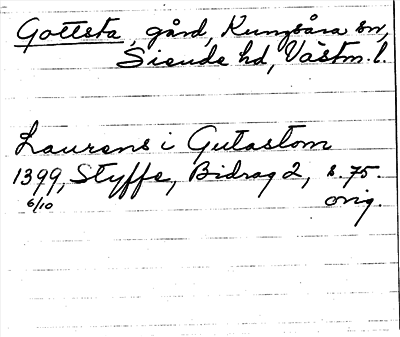 Gottsta, gård, Kungsåra sn,
Siende hd, Västm. l.
Laurens i Gutastom
1399, Styffe, Bidrag 2, s. 75.
6/10 orig.